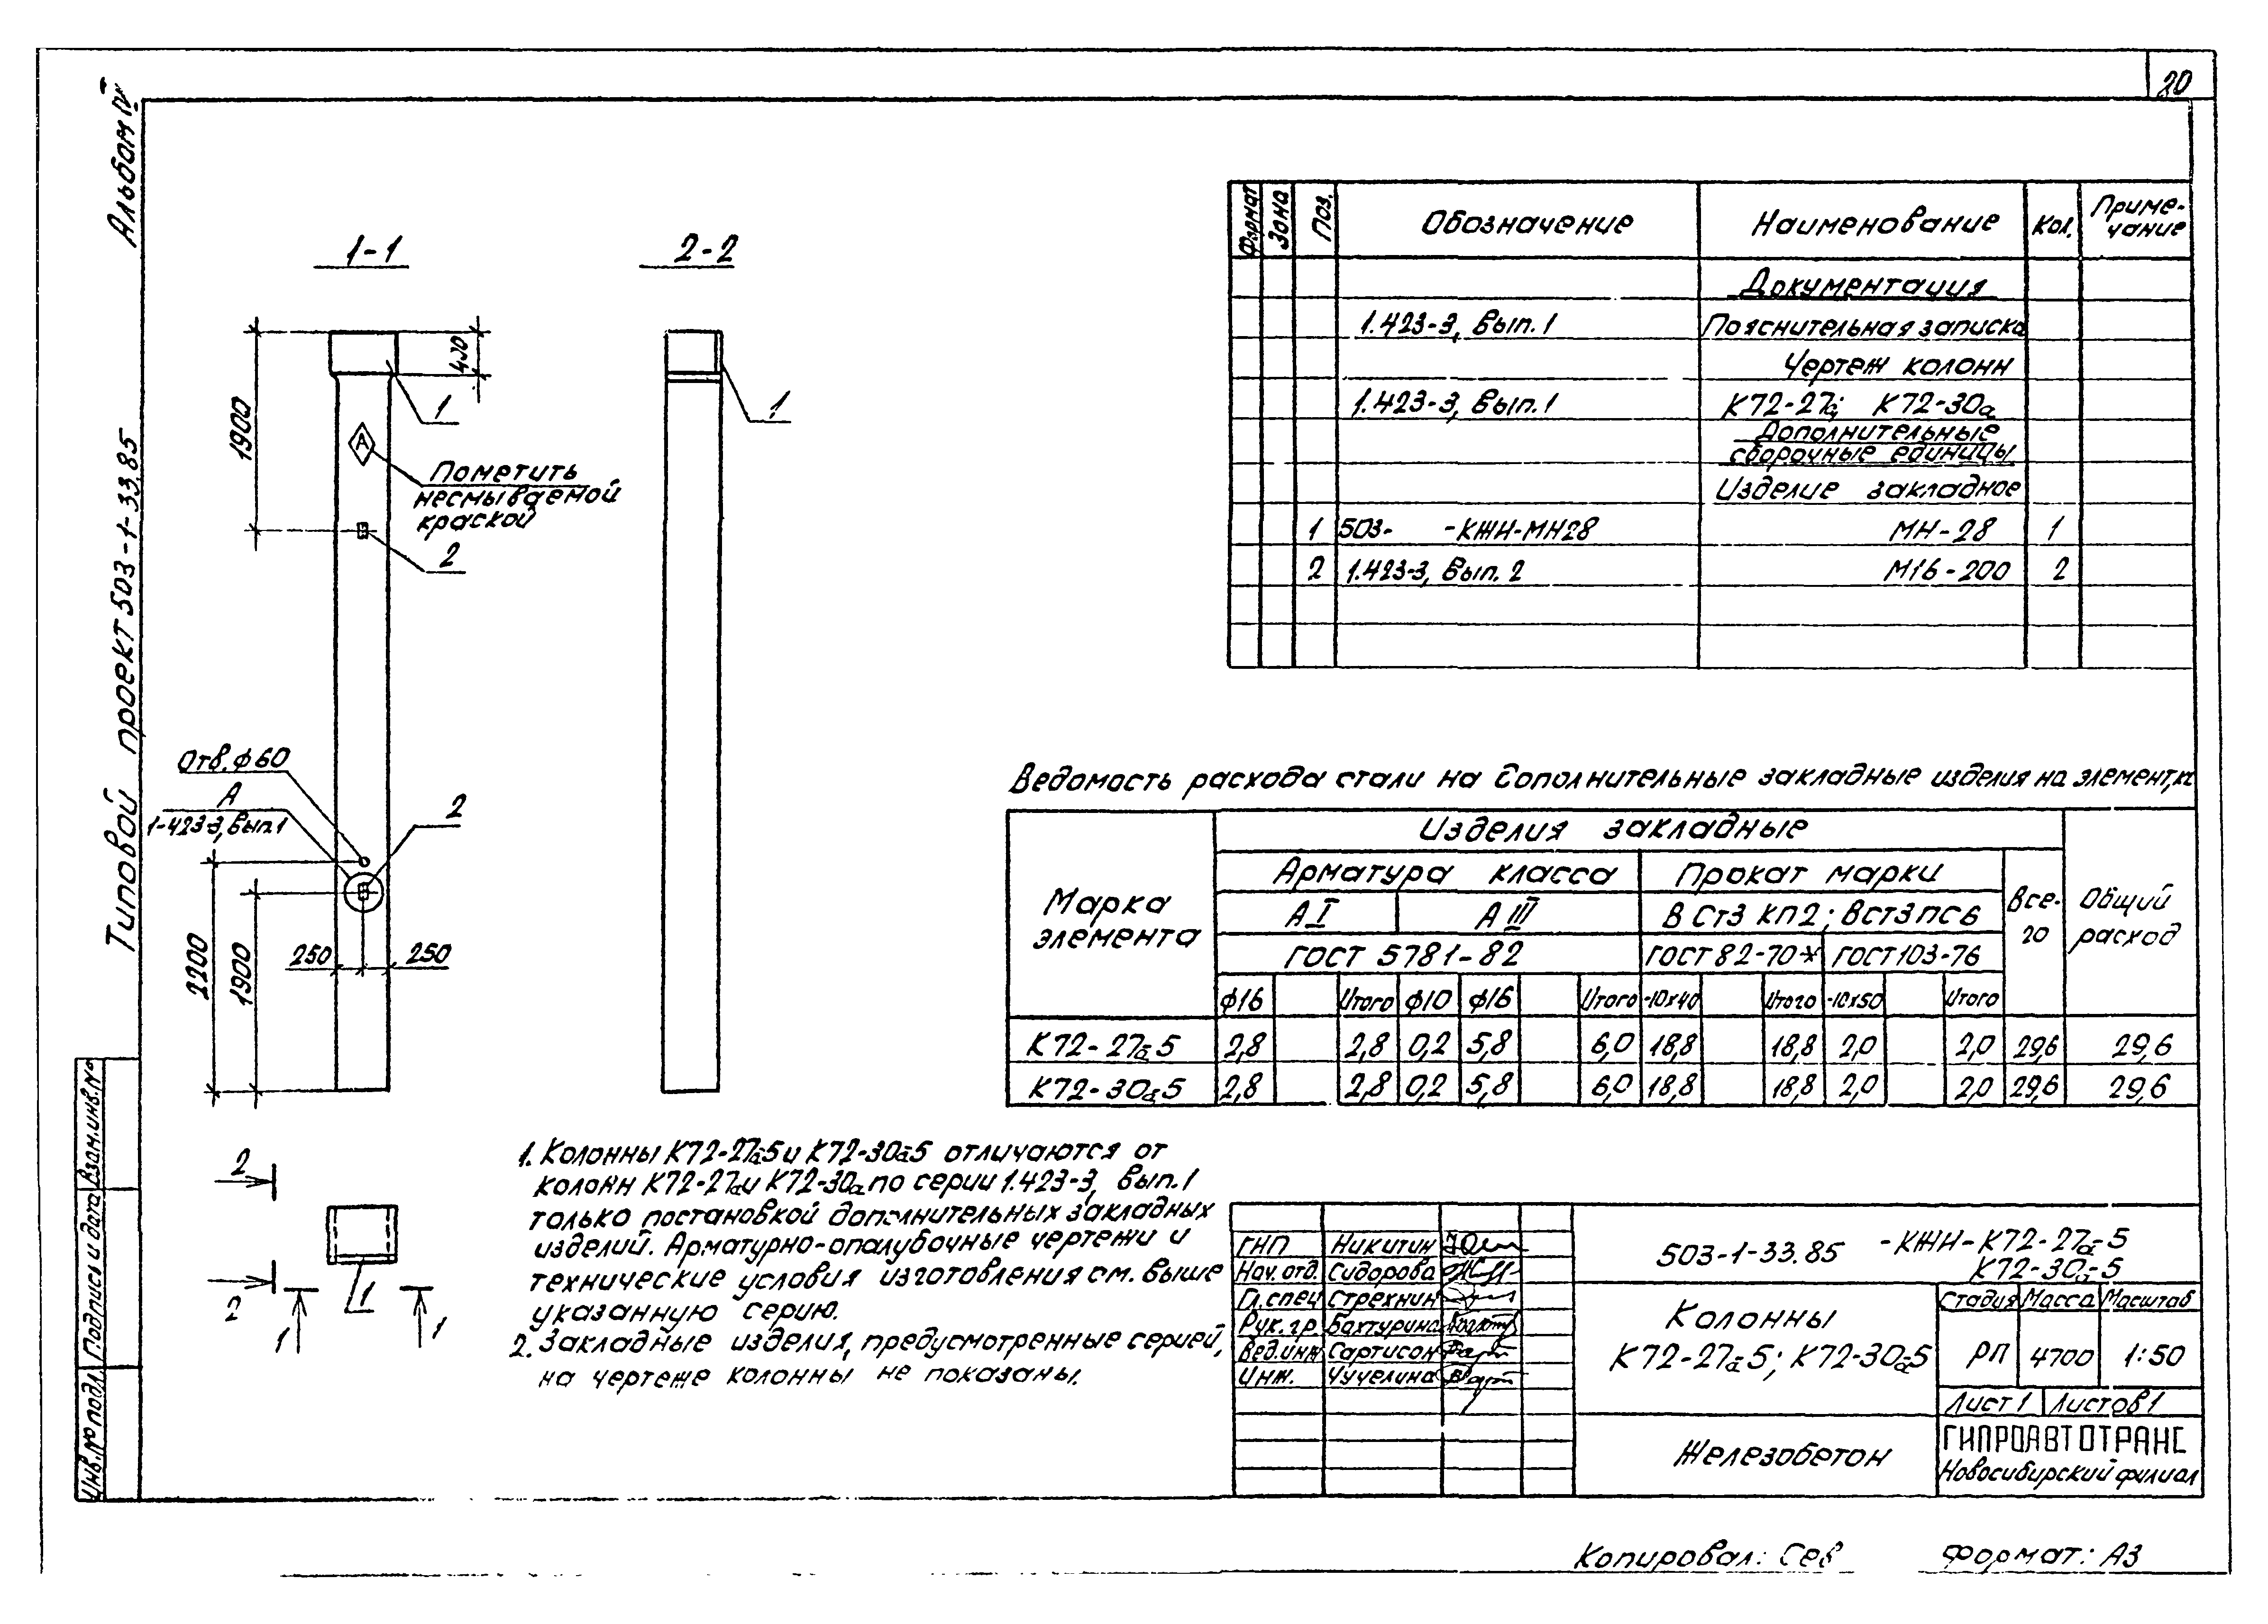 20
Альбом IV
Типовой проект 503-1-33.85
1-1
2-2
1900
400
1
1
А
Пометить
несмываемой
краской
2
Отв. ф60
А
1-423-3, вып.1
2
2200
1900
250
250
2
2
1
1
1
Формат
Зона
Поз.
Обозначение
Наименование
Кол.
Приме-
чание
Документация
1.423-3, вып.1
Пояснительная записка
Чертеж колонн
1.423-3, вып.1
К72-27а; К72-30а
Дополнительные
сборочные единицы
Изделие закладное
1 503- -КЖН-МН28 МН-28 1
2 1.423-3, вып. 2 М16-200 2
Ведомость расхода стали на дополнительные закладные изделия на элемент, кг
Марка
элемента
Изделия закладные
Арматура класса
Прокат марки
Все-
го
Общий
расход
А I
А III
В Ст3 кп2; Вст3пс6
ГОСТ 5781-82
ГОСТ 82-70*
ГОСТ 103-76
ф16 Итого ф10 ф16 Итого -10х40 Итого -10х50 Итого
К72-27а-5 2,8 2,8 0,2 5,8 6,0 18,8 18,8 2,0 2,0 29,6 29,6
К72-30а-5 2,8 2,8 0,2 5,8 6,0 18,8 18,8 2,0 2,0 29,6 29,6
1. Колонны К72-27а-5 и К72-30а-5 отличаются от
колонн К72-27а и К72-30а по серии 1.423-3, вып.1
только постановкой дополнительных закладных
изделий. Арматурно-опалубочные чертежи и
технические условия изготовления см. выше
указанную серию.
2. Закладные изделия, предусмотренные серией,
на чертеже колонны не показаны.
ГИП Никитин
Нач. отд. Сидорова
Гл. спец Стрехнин
Рук. гр. Бахтурина
Вед. инж Сартисон
Инж. Чучелина
503-1-33.85 -КЖН-К72-27а-5
К72-30а-5
Колонны
К72-27а-5; К72-30а-5
Стадия Масса Масштаб
РП 4700 1:50
Лист 1 Листов 1
Железобетон
ГИПРОАВТОТРАНС
Новосибирский филиал
Инв. № подл.
Подпись и дата
Взам. инв. №
Копировал: Сев
Формат: А3